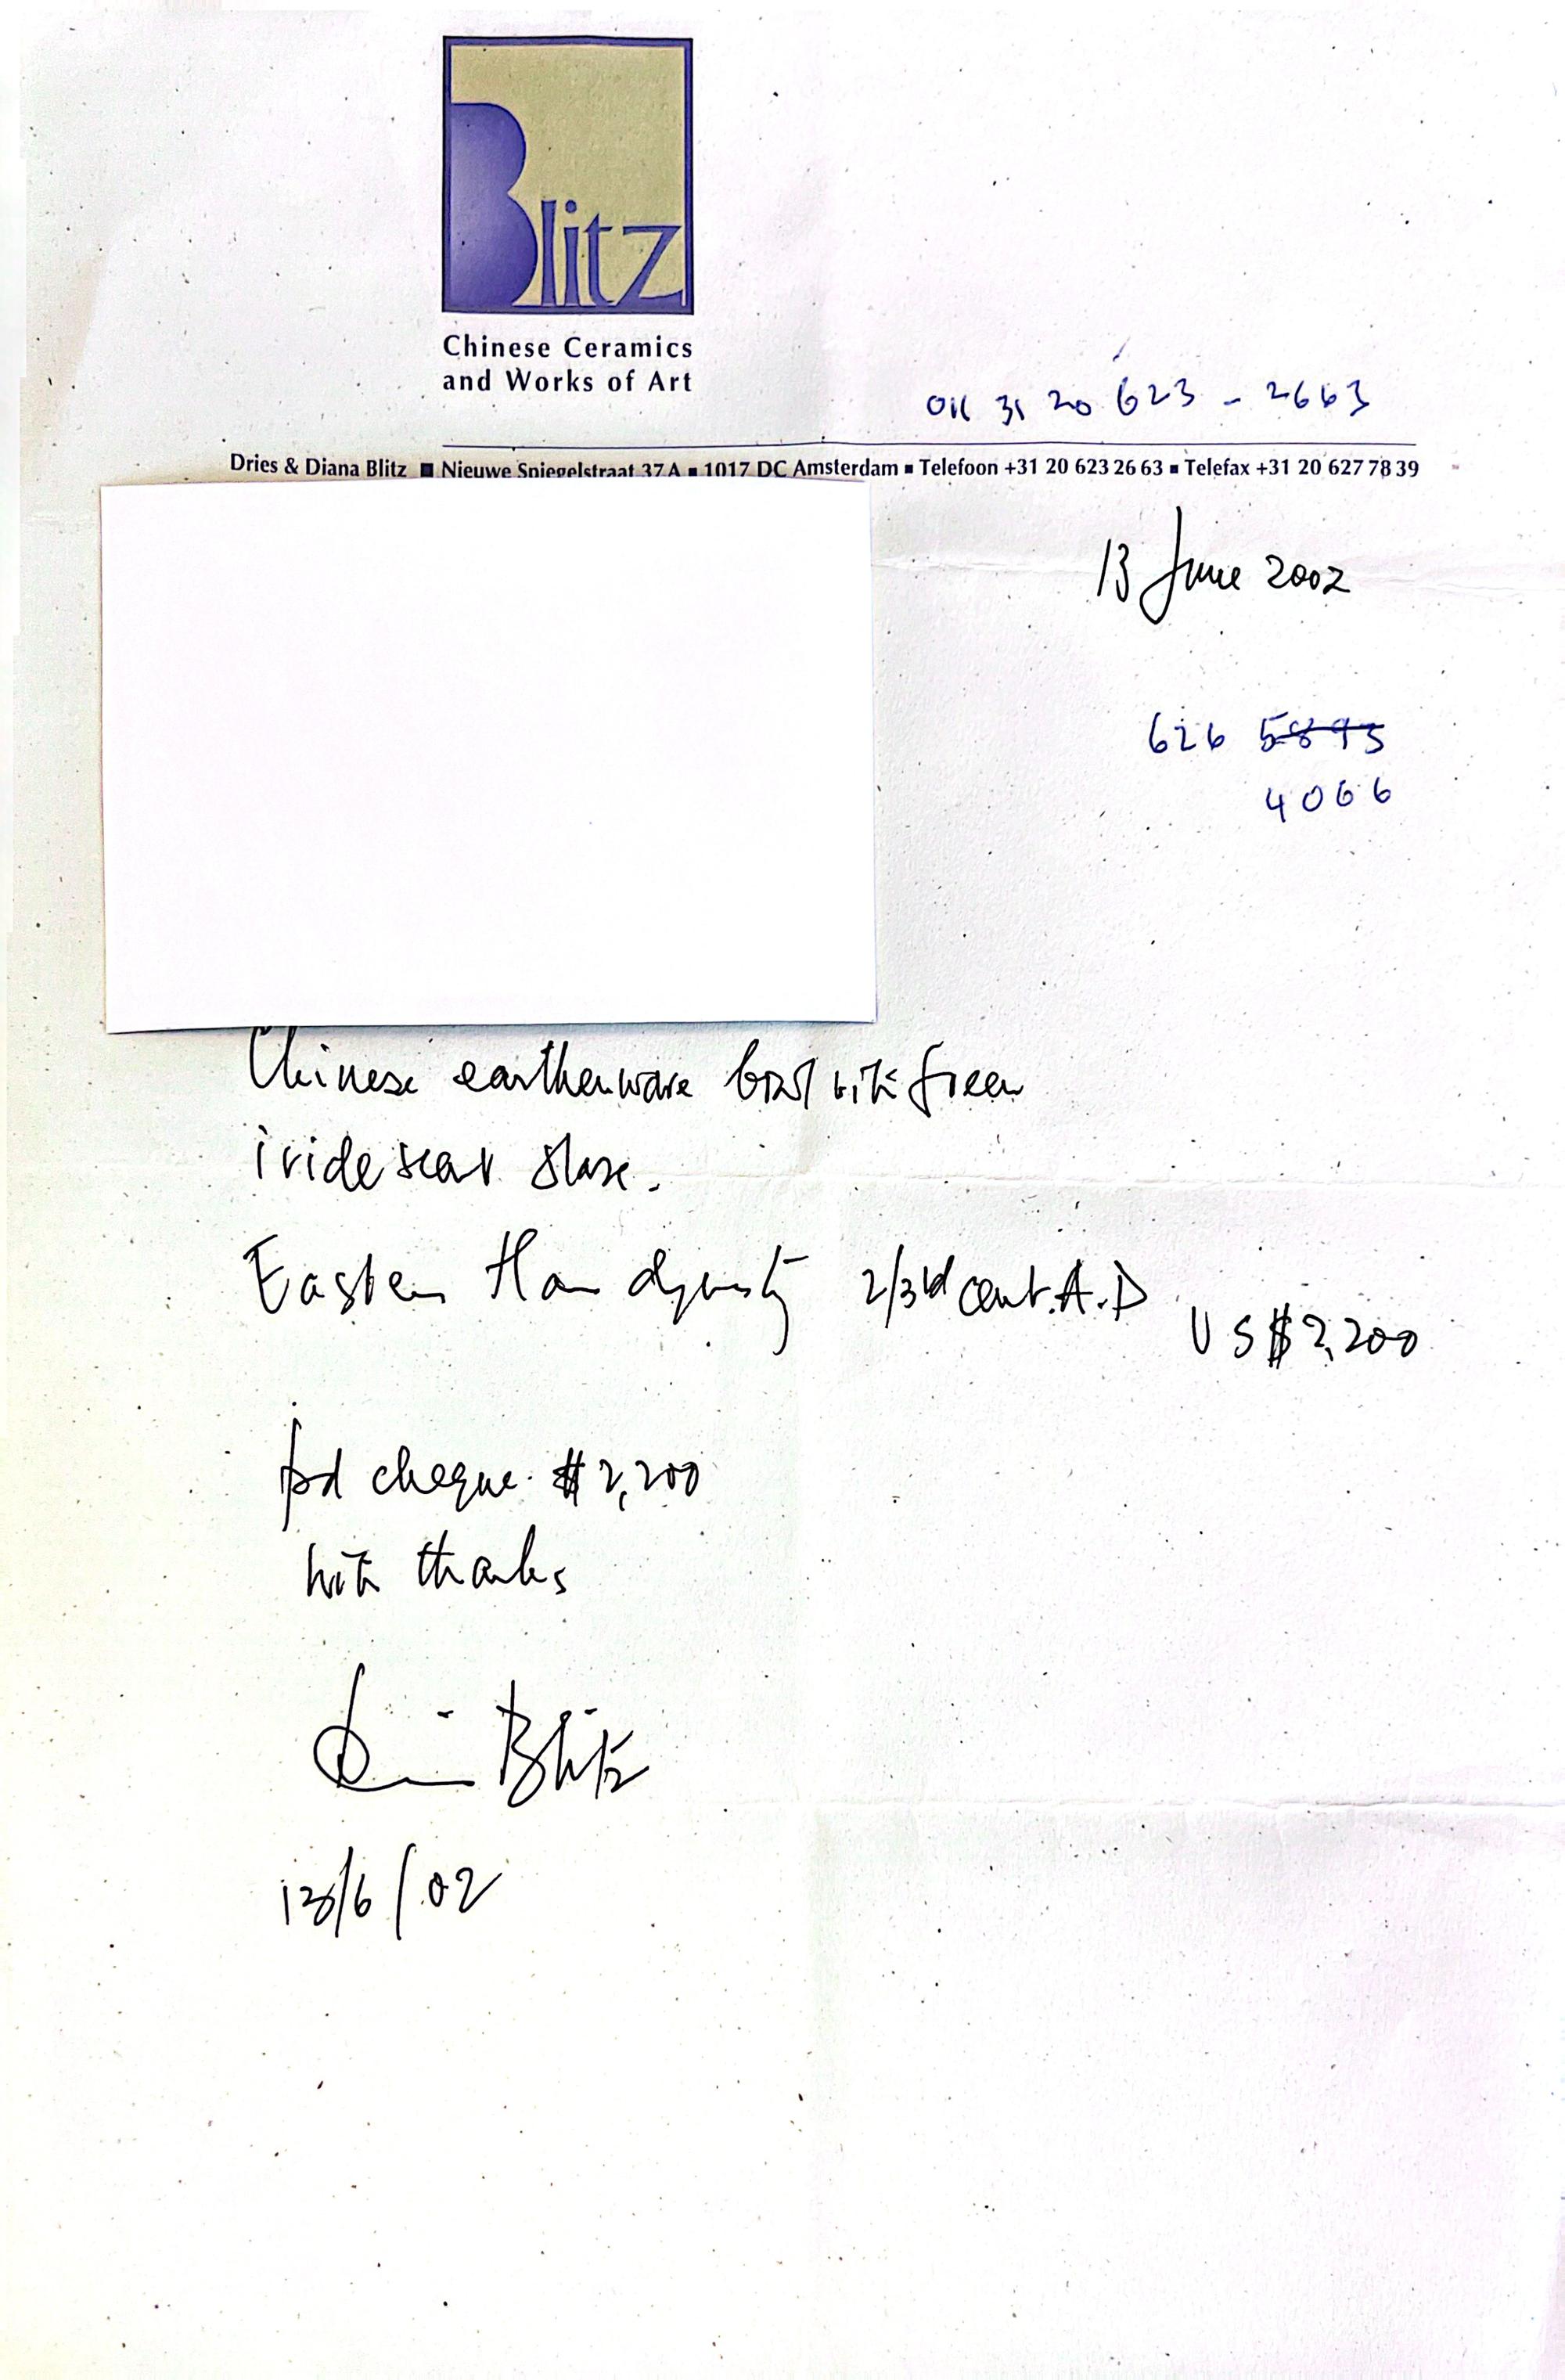 Blitz
Chinese Ceramics
and Works of Art
011 31 20 623 - 2663
Dries & Diana Blitz ■ Nieuwe Spiegelstraat 37A ■ 1017 DC Amsterdam ■ Telefoon +31 20 623 26 63 ■ Telefax +31 20 627 78 39
13 June 2002
626 5895
4066
Chinese earthenware bowl with green
iridescent glaze.
Eastern Han dynasty 2/3rd cent. A.D
US $2,200
pd cheque $2,200
with thanks
Blitz
13/6/02